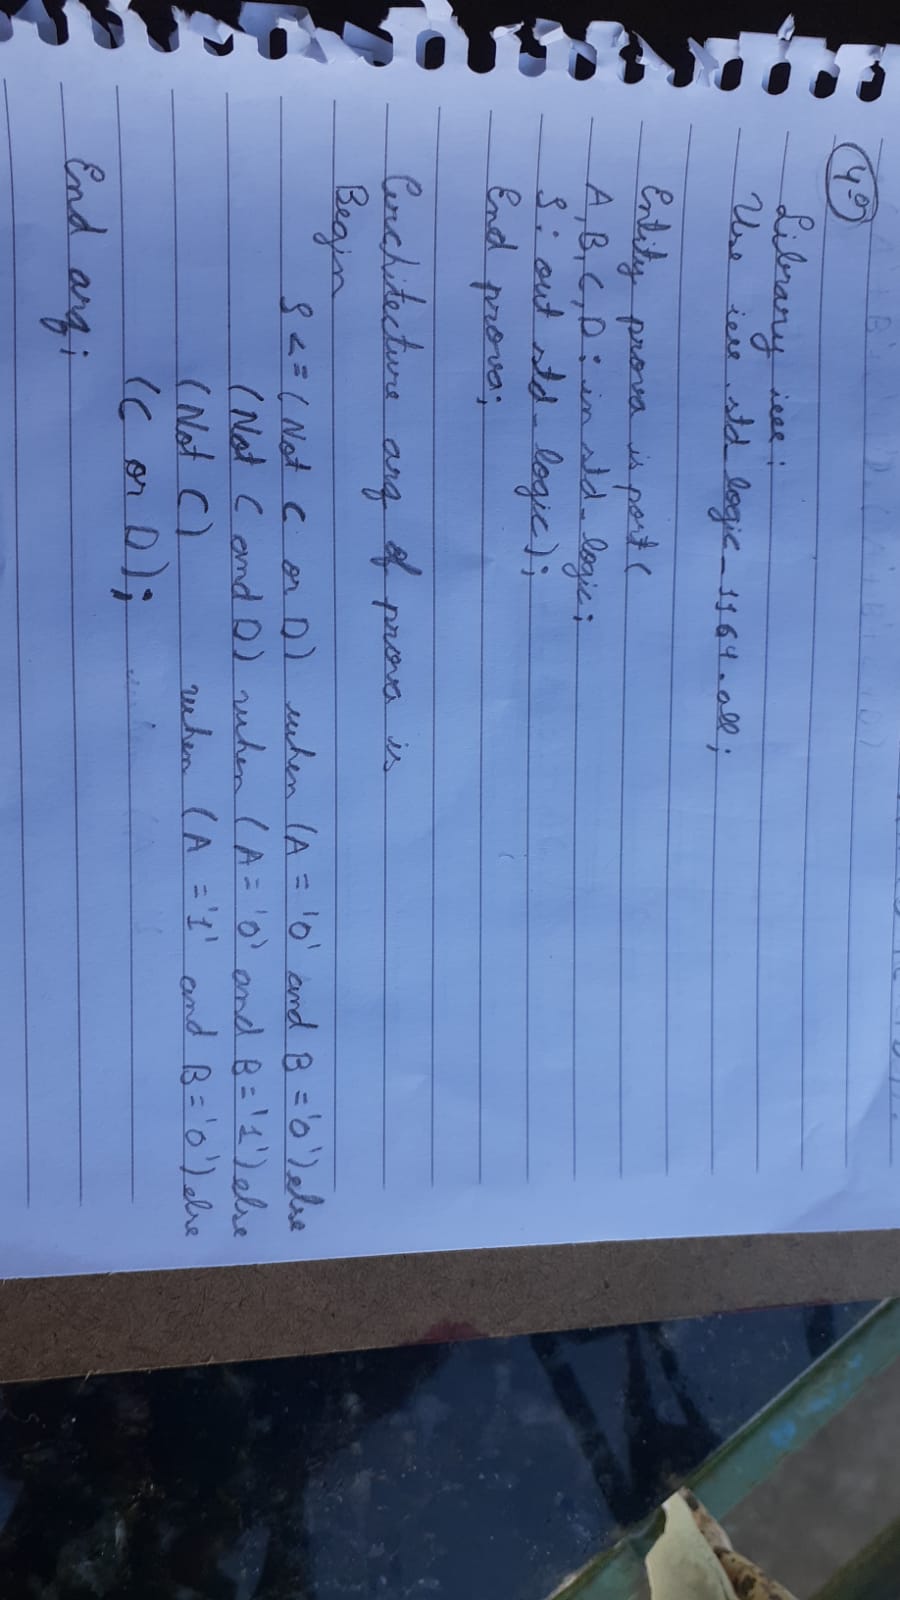 4º
Library ieee;
Use ieee.std_logic_1164.all;
Entity prova is port(
A,B,C,D: in std_logic;
S: out std_logic);
End prova;
Architecture arq of prova is
Begin
S <= (Not C or D) when (A = '0' and B = '0') else
(Not C and D) when (A = '0' and B = '1') else
(Not C) when (A = '1' and B = '0') else
(C or D);
End arq;